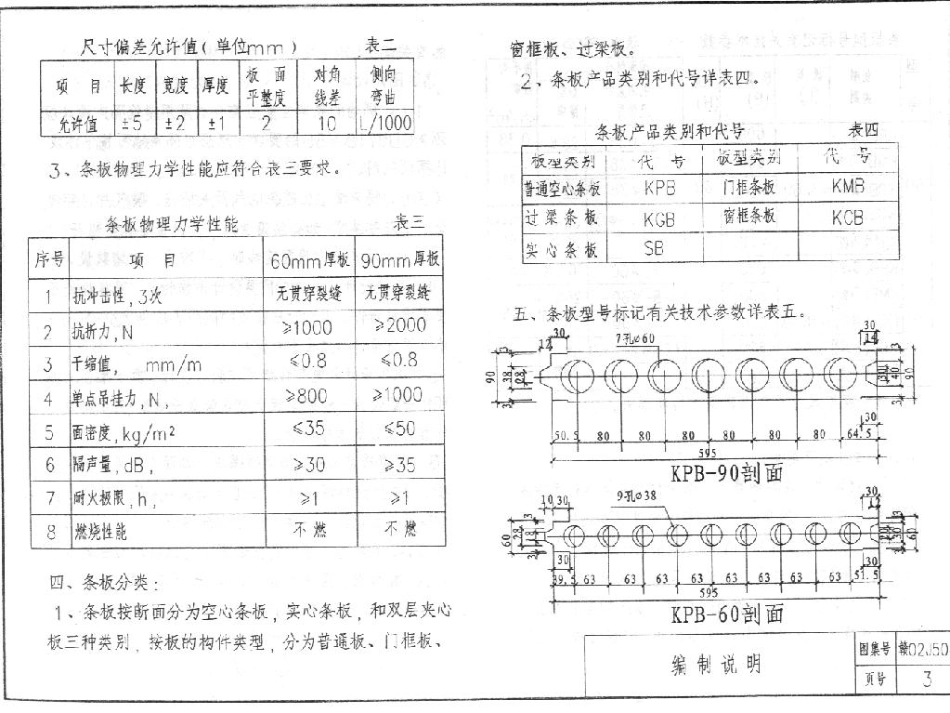 尺寸偏差允许值(单位mm) 表二
项 目 长度 宽度 厚度 板面平整度 对角线差 侧向弯曲
允许值 ±5 ±2 ±1 2 10 L/1000
3、条板物理力学性能应符合表三要求。
条板物理力学性能 表三
序号 项 目 60mm厚板 90mm厚板
1 抗冲击性,3次 无贯穿裂缝 无贯穿裂缝
2 抗折力,N ≥1000 ≥2000
3 干缩值, mm/m ≤0.8 ≤0.8
4 单点吊挂力,N, ≥800 ≥1000
5 面密度,kg/m² ≤35 ≤50
6 隔声量,dB, ≥30 ≥35
7 耐火极限,h, ≥1 ≥1
8 燃烧性能 不燃 不燃
四、条板分类:
1、条板按断面分为空心条板,实心条板,和双层夹心
板三种类别,按板的构件类型,分为普通板、门框板、
窗框板、过梁板。
2、条板产品类别和代号详表四。
条板产品类别和代号 表四
板型类别 代 号 板型类别 代 号
普通空心条板 KPB 门框条板 KMB
过梁条板 KGB 窗框条板 KCB
实心条板 SB
五、条板型号标记有关技术参数详表五。
7孔ø60
30
90 38
90
30
50.5 80 80 80 80 80 80 64.5
595
KPB-90剖面
9孔ø38
10 30
30
60 28 18
60
30
30
39.5 63 63 63 63 63 63 63 63 51.5
595
KPB-60剖面
编制说明
图集号 赣02J50
页号 3